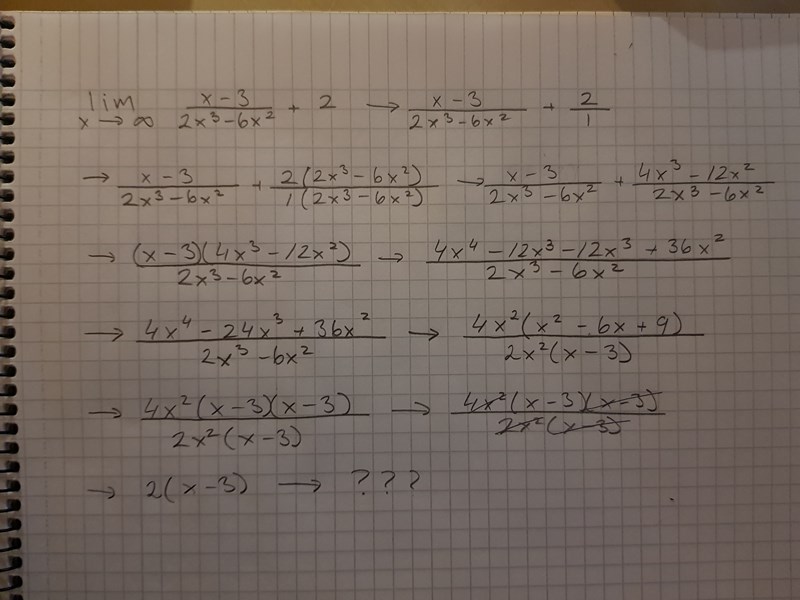 lim x → ∞ (x - 3)/(2x³ - 6x²) + 2 → (x - 3)/(2x³ - 6x²) + 2/1
→ (x - 3)/(2x³ - 6x²) + 2(2x³ - 6x²)/1(2x³ - 6x²) → (x - 3)/(2x³ - 6x²) + (4x³ - 12x²)/(2x³ - 6x²)
→ (x - 3)(4x³ - 12x²)/(2x³ - 6x²) → (4x⁴ - 12x³ - 12x³ + 36x²)/(2x³ - 6x²)
→ (4x⁴ - 24x³ + 36x²)/(2x³ - 6x²) → 4x²(x² - 6x + 9)/2x²(x - 3)
→ 4x²(x - 3)(x - 3)/2x²(x - 3) → 4x²(x - 3)(x - 3)/2x²(x - 3)
→ 2(x - 3) → ???